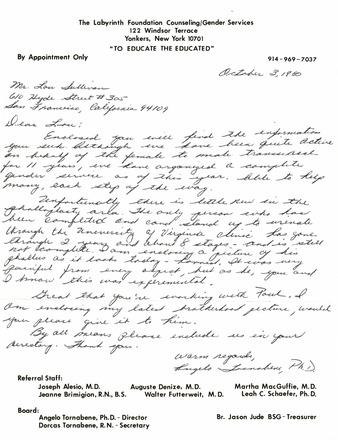 The Labyrinth Foundation Counseling/Gender Services
122 Windsor Terrace
Yonkers, New York 10701
"TO EDUCATE THE EDUCATED"
By Appointment Only
914-969-7037
October 3, 1980
Mr. Lou Sullivan
Hyde Street # 305
San Francisco, California 94109
Dear Lou:
Enclosed you will find the information
you Although we have been quite active
on behalf of the female to male transsexual
for 11 years, we have organized a complete
gender service as of this year. Able to help
many, each step of the way.
Unfortunately there is little new in the
phalloplasty area. The only person who has
been completed and can stand up to urinate
through the University of Virginia Clinic has gone
through 2 years and about 8 stages - and is still
not complete. I am enclosing a picture of his
phallus as it looks today - It was very
painful from every aspect, but as he, you and
I know this was experimental.
Great that you're working with Paul. I
am enclosing my latest brotherhood picture, would
you please give it to him.
By all means please include us in your
directory. Thank you.
Warm regards,
Angelo Tornabene, Ph.D.
Referral Staff:
Joseph Alesio, M.D.
Auguste Denize, M.D.
Martha MacGuffie, M.D.
Jeanne Brimigion, R.N., B.S.
Walter Futterweit, M.D.
Leah C. Schaefer, Ph.D.
Board:
Angelo Tornabene, Ph.D. - Director
Br. Jason Jude BSG - Treasurer
Dorcas Tornabene, R.N. - Secretary